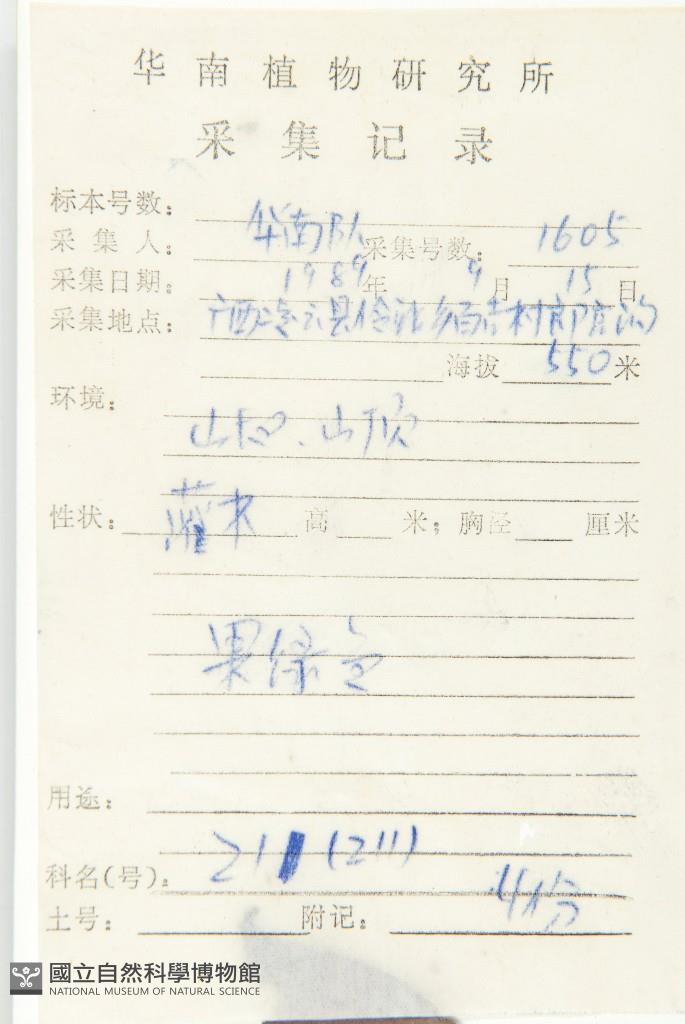 华南植物研究所
采集记录
标本号数:
采集人: 华南队 采集号数: 1605
采集日期: 1989年 9月 15日
采集地点: 广西凌云县伶站乡
海拔 550 米
环境:
山坡、山顶
性状: 灌木 高 米; 胸径 厘米
果绿色
用途:
211 (211)
科名(号):
土号: 附记: 4份
國立自然科學博物館
NATIONAL MUSEUM OF NATURAL SCIENCE